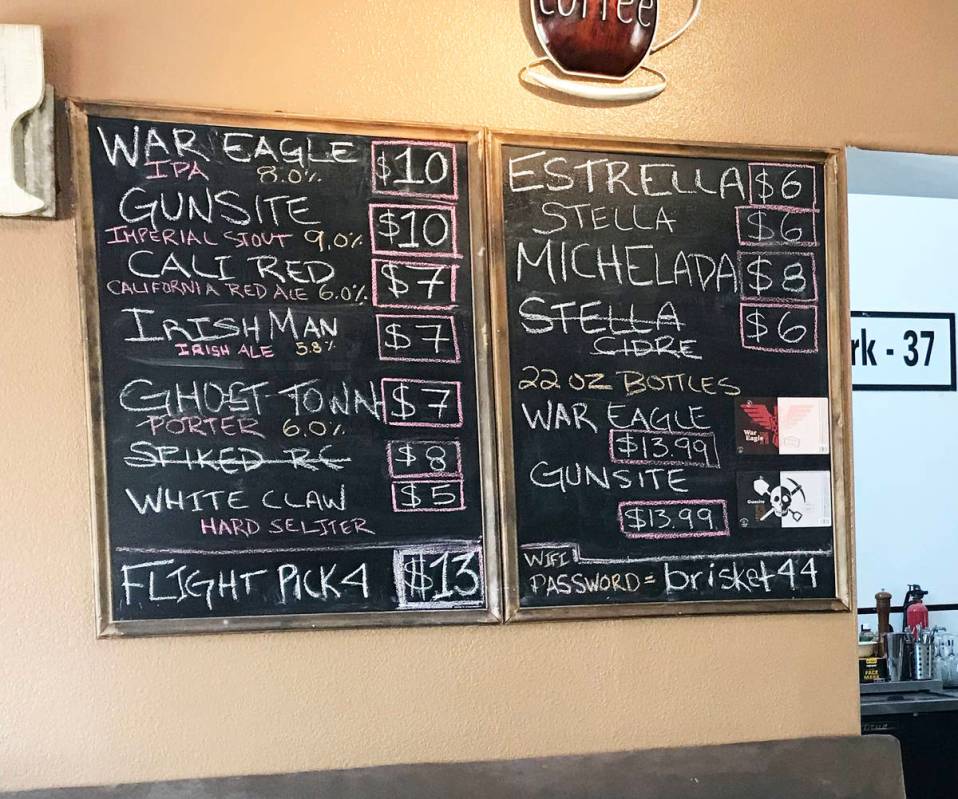 coffee
WAR EAGLE $10
IPA 8.0%
GUNSITE $10
IMPERIAL STOUT 9.0%
CALI RED $7
CALIFORNIA RED ALE 6.0%
IRISH MAN $7
IRISH ALE 5.8%
GHOST TOWN $7
PORTER 6.0%
SPIKED RC $8
WHITE CLAW $5
HARD SELJTER
FLIGHT PICK 4 $13
ESTRELLA $6
STELLA $6
MICHELADA $8
STELLA $6
CIDRE
22 OZ BOTTLES
WAR EAGLE
$13.99
War
Eagle
GUNSITE
$13.99
Gunsite
WIFI
PASSWORD = brisket44
rk - 37
FACE
MASK